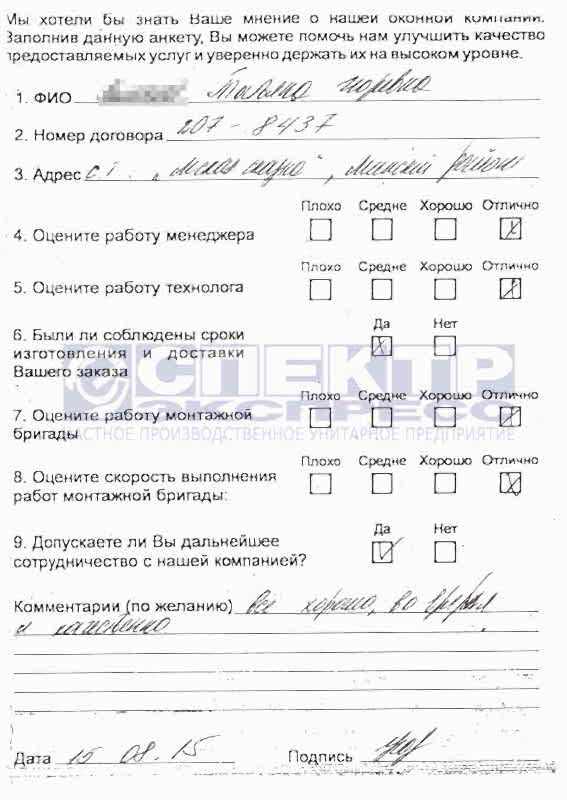 Мы хотели бы знать Ваше мнение о нашей оконной компании.
Заполнив данную анкету, Вы можете помочь нам улучшить качество
предоставляемых услуг и уверенно держать их на высоком уровне.
1. ФИО Татьяна Игоревна
2. Номер договора 207-8437
3. Адрес с.т. " сказка", Минский район
Плохо Средне Хорошо Отлично
4. Оцените работу менеджера
Плохо Средне Хорошо Отлично
5. Оцените работу технолога
Да Нет
6. Были ли соблюдены сроки
изготовления и доставки
Вашего заказа
СПЕКТР
ЭКСПРЕСС
ЧАСТНОЕ ПРОИЗВОДСТВЕННОЕ УНИТАРНОЕ ПРЕДПРИЯТИЕ
Плохо Средне Хорошо Отлично
7. Оцените работу монтажной
бригады
Плохо Средне Хорошо Отлично
8. Оцените скорость выполнения
работ монтажной бригады:
Да Нет
9. Допускаете ли Вы дальнейшее
сотрудничество с нашей компанией?
Комментарии (по желанию) все хорошо, во время
и качественно
Дата 15 08.15 Подпись